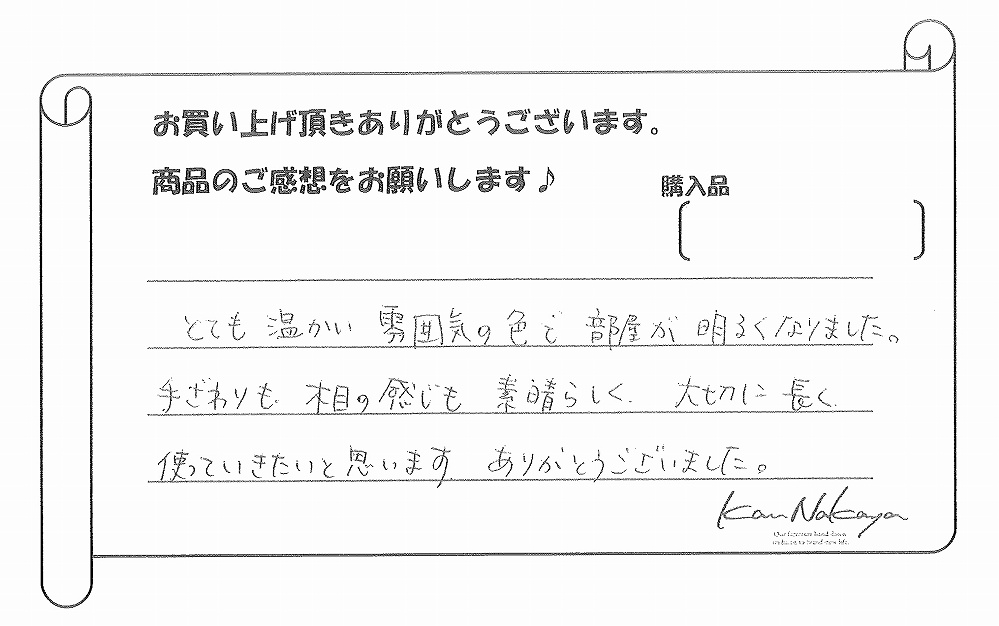 お買い上げ頂きありがとうございます。
商品のご感想をお願いします♪
購入品
とても 温かい 雰囲気の色で 部屋が 明るくなりました。
手ざわりも 木目の感じも 素晴らしく 大切に 長く
使っていきたいと思います ありがとうございました。
Kan Nakaya
Our furniture hand down
tradition to brand-new life.